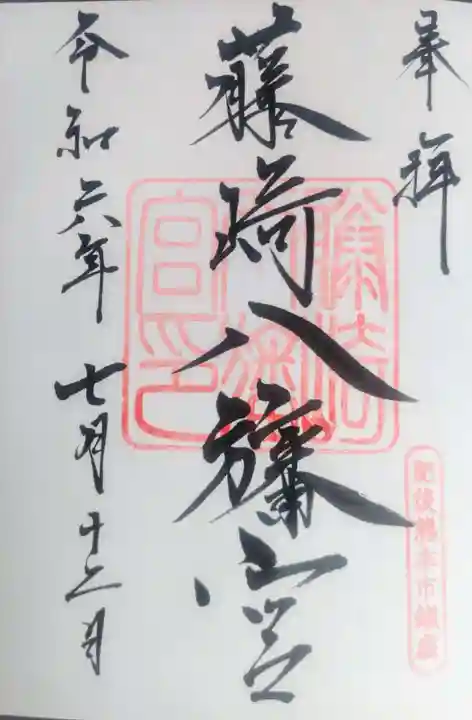 奉拝
肥後熊本市鎮座
藤崎八旛宮
藤崎八旛宮印
令和六年七月十二日